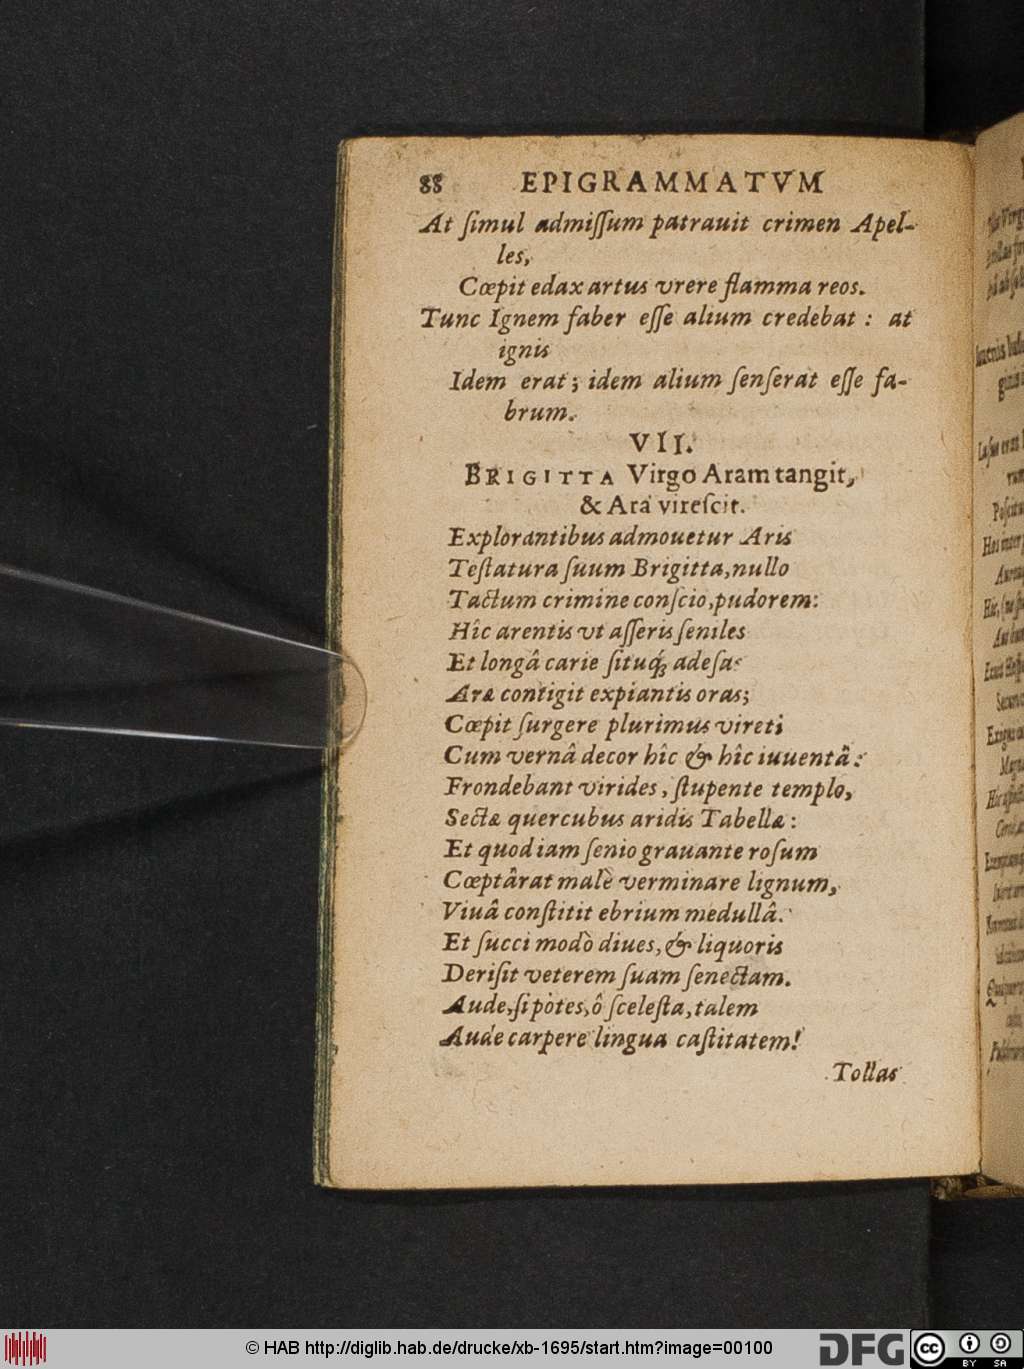 88 EPIGRAMMATVM
At ſimul admiſſum patrauit crimen Apel-
les,
Cœpit edax artus vrere flamma reos.
Tunc Ignem faber eſſe alium credebat : at
ignis
Idem erat; idem alium ſenſerat eſſe fa-
brum.
VII.
BRIGITTA Virgo Aram tangit,
& Ara vireſcit.
Explorantibus admouetur Aris
Teſtatura ſuum Brigitta, nullo
Tactum crimine conſcio, pudorem:
Hîc arentis vt aſſeris ſeniles
Et longâ carie ſituq́; adeſas
Aræ contigit expiantis oras;
Cœpit ſurgere plurimus vireti
Cum vernâ decor hîc & hîc iuuentâ:
Frondebant virides, ſtupente templo,
Sectæ quercubus aridis Tabellæ:
Et quod iam ſenio grauante roſum
Cœptârat malè verminare lignum,
Viuâ conſtitit ebrium medullâ.
Et ſucci modò diues, & liquoris
Deriſit veterem ſuam ſenectam.
Aude, ſi potes, ô ſceleſta, talem
Aude carpere lingua caſtitatem!
Tollas
© HAB http://diglib.hab.de/drucke/xb-1695/start.htm?image=00100
DFG
cc BY SA